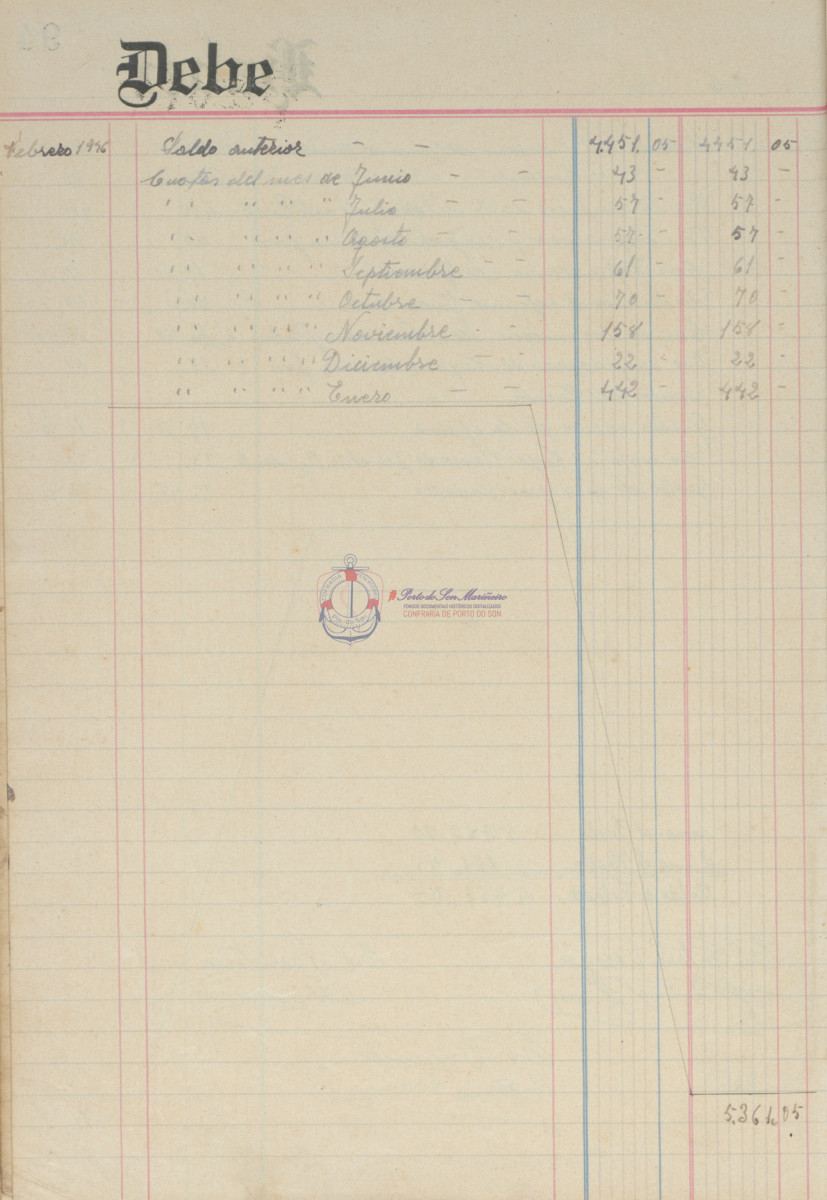 Debe
Febrero Saldo anterior - - 4.451. 05 4451 05
Cuotas del mes de Junio - - 43 - 43 -
" " " " " Julio - - 57 - 57 -
" " " " " Agosto - - 57 - 57 -
" " " " " Septiembre - - 61 - 61 -
" " " " " Octubre - - 70 - 70 -
" " " " " Noviembre - - 158 - 158 -
" " " " " Diciembre - - 22 - 22 -
" " " " " Enero - - 442 - 442 -
Porto do Son Mariñeiro
FONDOS DOCUMENTAIS HISTÓRICOS DIXITALIZADOS
CONFRARÍA DE PORTO DO SON
Pto. do Son
5.361,05